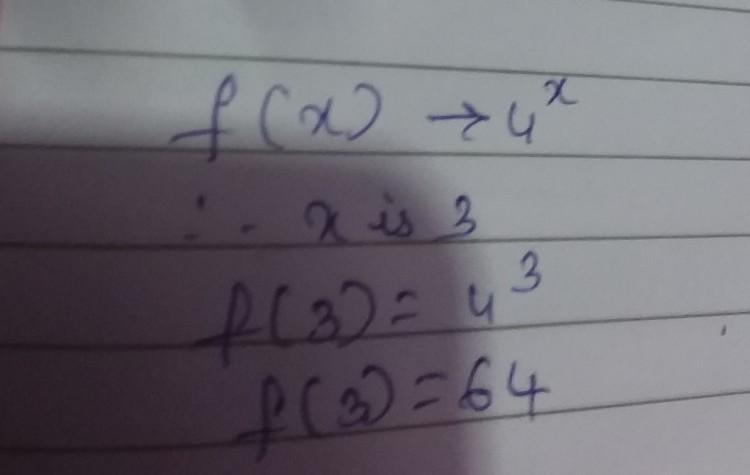 f(x) → 4^x
∴ x is 3
f(3) = 4^3
f(3) = 64